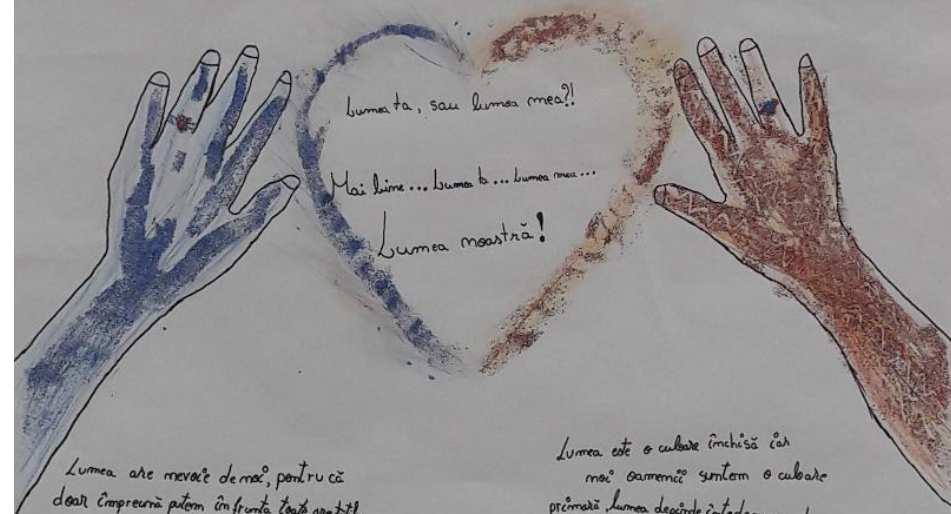 Lumea ta, sau lumea mea?!
Mai bine... Lumea ta... Lumea mea...
Lumea noastră!
Lumea are nevoie de noi, pentru că
doar împreună putem înfrunta toate
Lumea este o culoare închisă iar
noi oamenii suntem o culoare
primară, lumea depinde